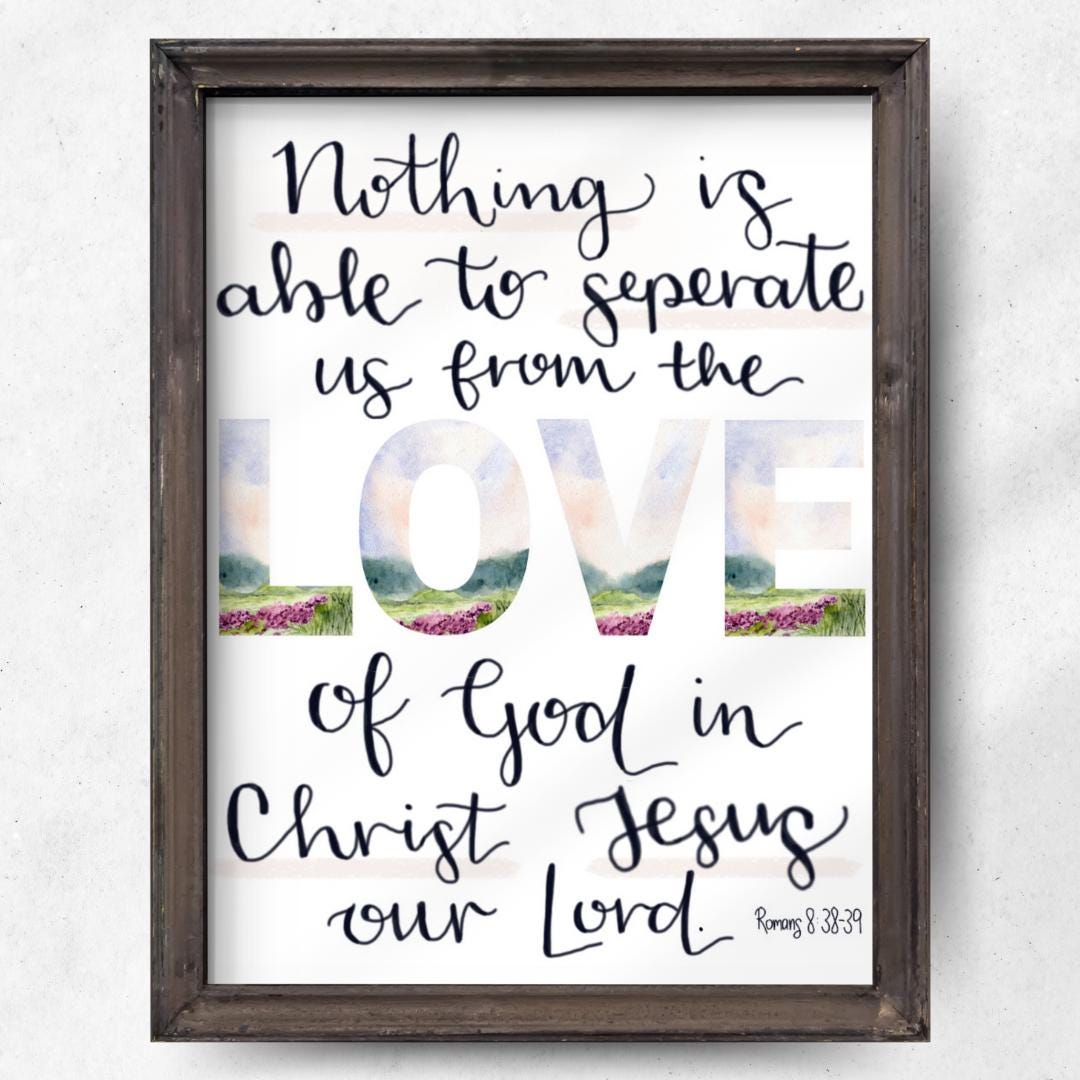 Nothing is
able to seperate
us from the
LOVE
of God in
Christ Jesus
our Lord.
Romans 8:38-39